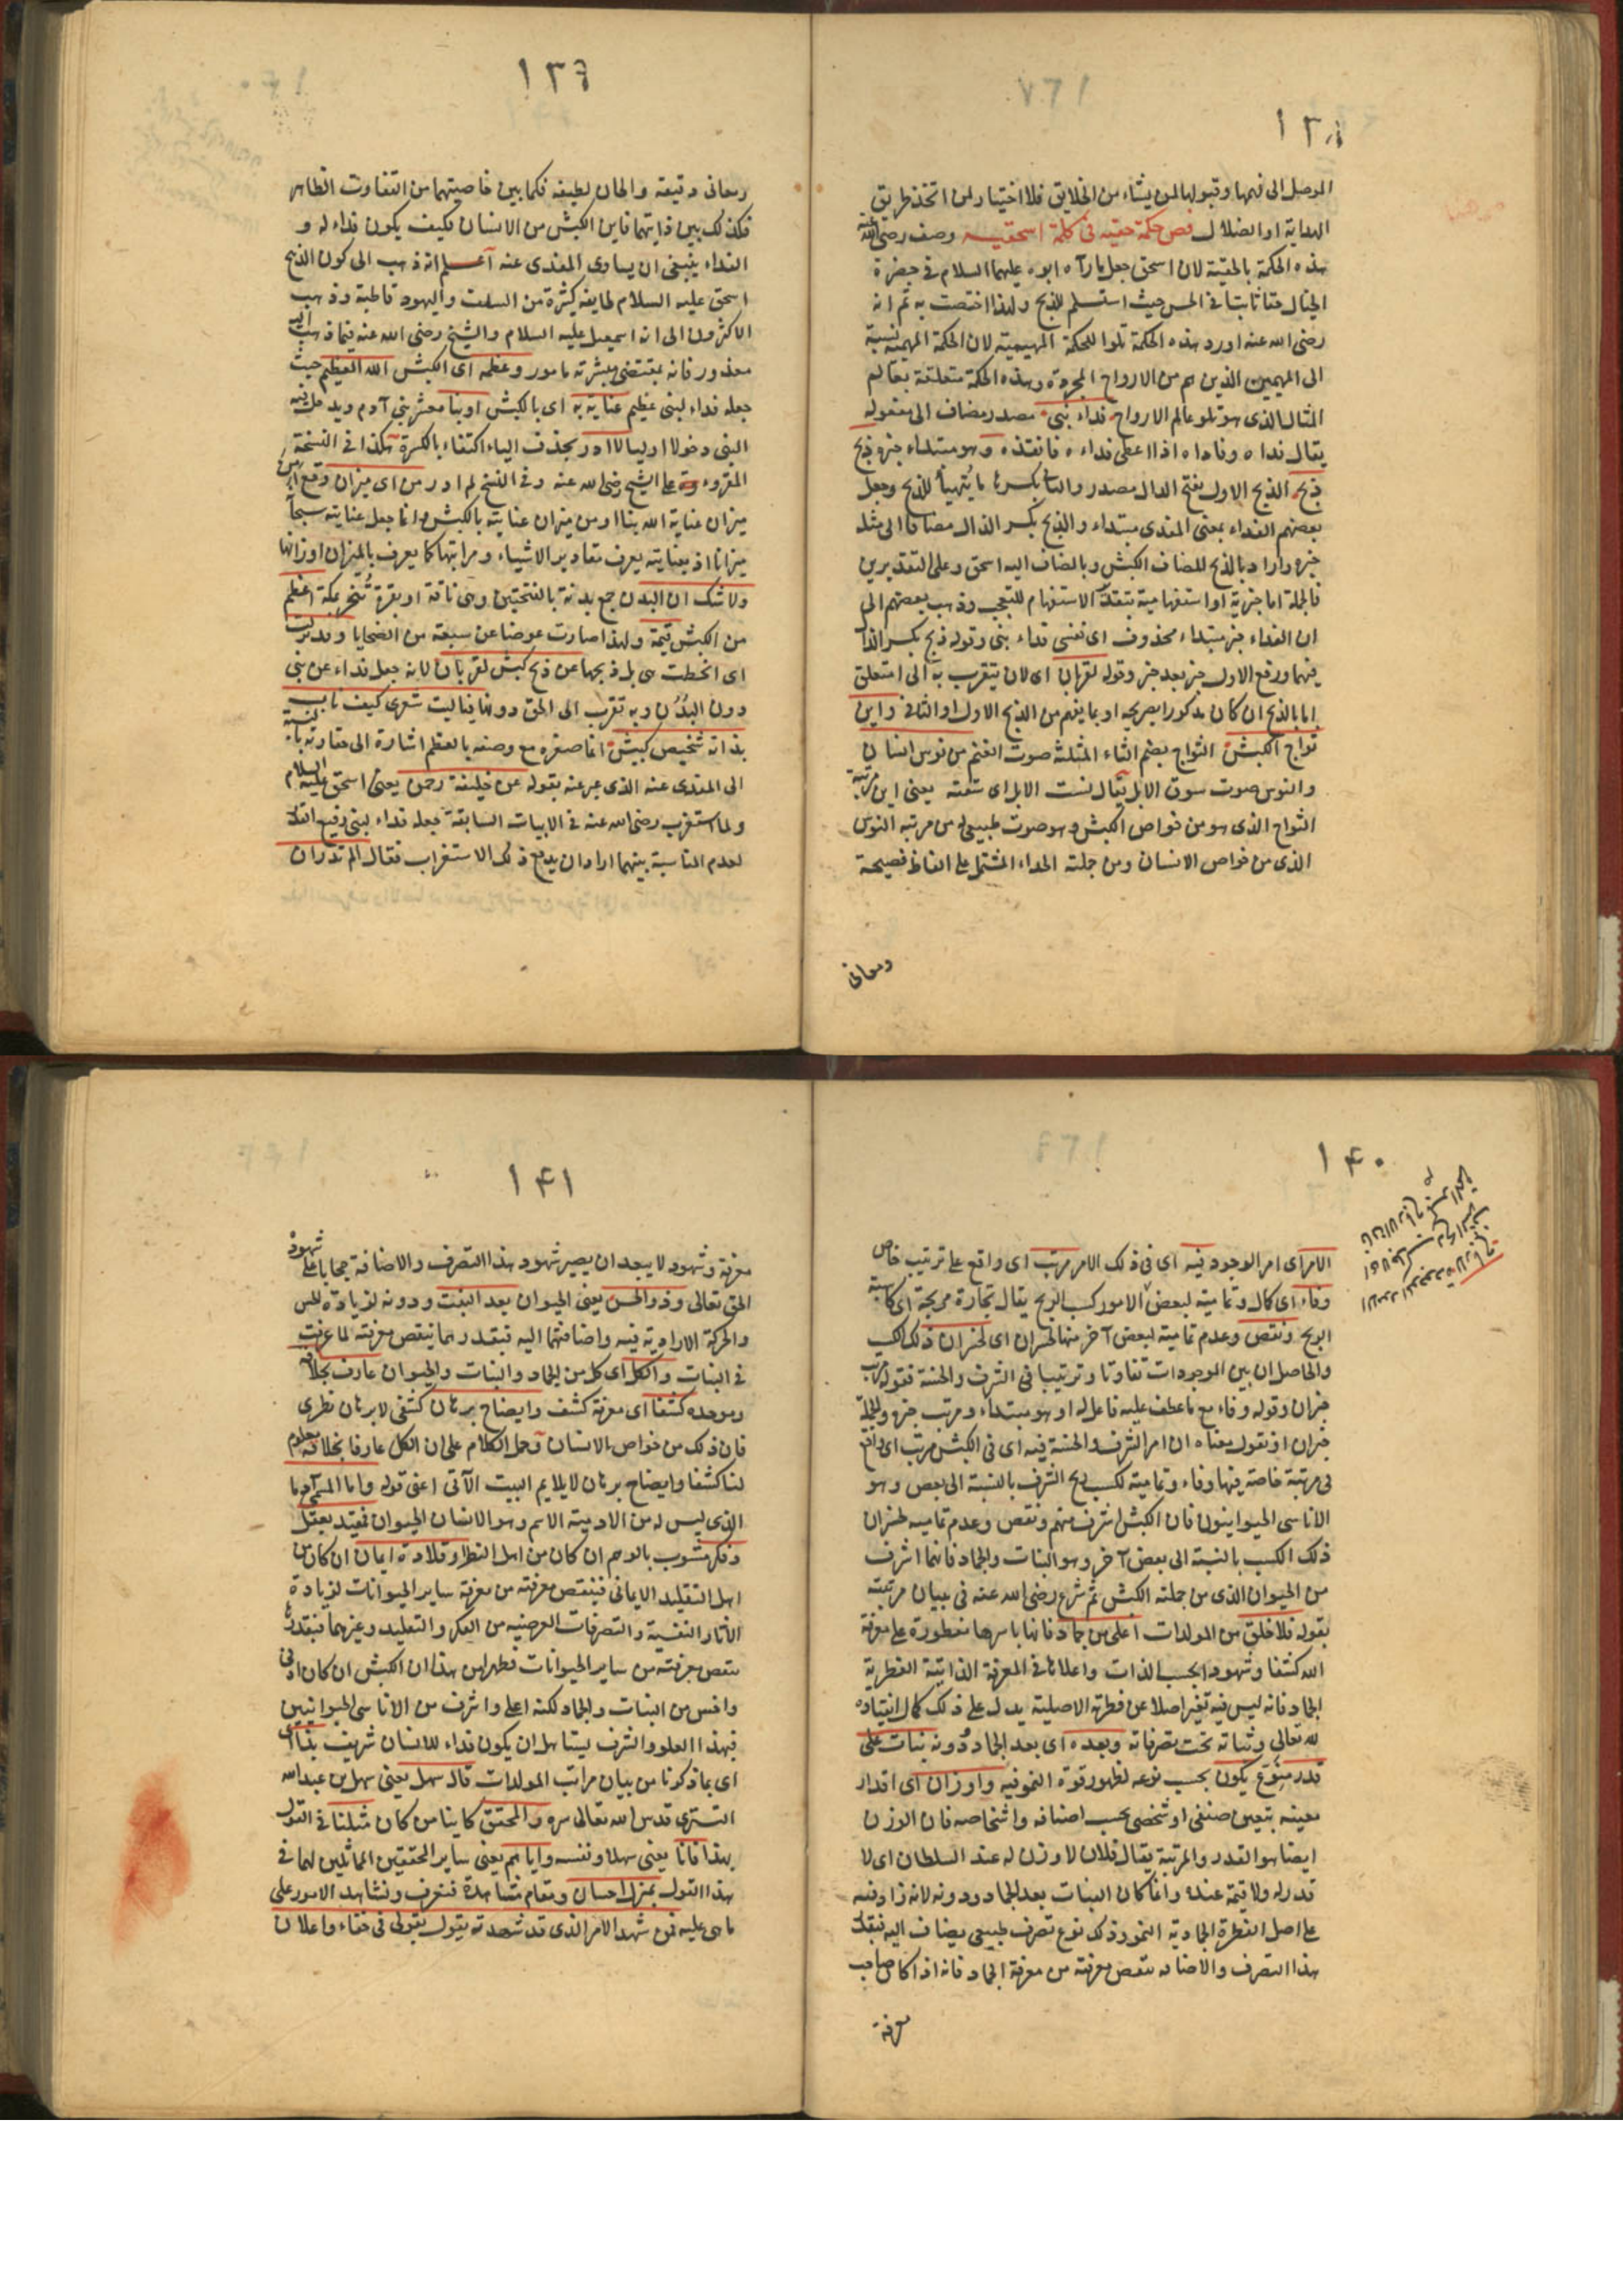 ١٣٨
الموصل الى فهمها وقبولها لمن يشاء من الخلايق فلا اختيار لمن اتخذ طريق
الهداية او الضلال فص حكمة حقيه فى كلمة اسحقيه وصف رضى الله عنه
هذه الحكمة بالحقية لان اسحق جعل ما رآه ابوه عليهما السلام فى حضرة
الخيال حقا ثابتا فى الحس حيث استسلم للذبح ولهذا اختصت به ثم انه
رضى الله عنه اورد هذه الحكمة تلوا للحكمة المهيمية لان الحكمة المهيمية نسبة
الى المهيمين الذين هم من الارواح المجردة وهذه الحكمة متعلقة بعالم
المثال الذى هو تلو عالم الارواح فداء نبى مصدر مضاف الى مفعوله
يقال فداه وفاداه اذا اعطى فداءه فانقذه وهو مبتداء خبره ذبح
ذبح الذبح الاول بفتح الدال مصدر والثانى بكسرها ما يتهيأ للذبح وجعل
بعضهم الفداء بمعنى المفدى مبتداء والذبح بكسر الذال مضافا الى مثله
خبره واراد بالذبح المضاف الكبش وبالمضاف اليه اسحق وعلى التقديرين
فالجملة اما خبرية او استفهامية بتقدير الاستفهام للتعجب وذهب بعضهم الى
ان الفداء خبر مبتداء محذوف اى نفسى فداء نبى وقوله ذبح بكسر الذال
فيهما ورفع الاول خبر بعد خبر وقوله لقربان اى لان يتقرب به الى متعلق
اما بالذبح ان كان مذكورا بصريحه او بما يفهم من الذبح الاول او الثانى واين
ثواج الكبش الثواج بضم الثاء المثلثة صوت الغنم من نوس انسان
والنوس صوت سوق الابل يقال نست الابل اى سقته يعنى اين مرتبة
الثواج الذى هو من خواص الكبش وهو صوت طبيعى له من مرتبة النوس
الذى من خواص الانسان ومن جملته الحداء المشتمل على الفاظ فصيحة
ومعانى
١٣٩
ومعانى دقيقة والحان لطيفه فكما بين خاصيتهما من التفاوت الظاهر
فكذلك بين ذاتيهما فاين الكبش من الانسان فكيف يكون فداء له و
الفداء ينبغى ان يساوى المفدى عنه اعلم انه ذهب الى كون الذبيح
اسحق عليه السلام طايفة كثيرة من السلف واليهود قاطبة وذهب
الاكثرون الى انه اسمعيل عليه السلام والشيخ رضى الله عنه فيما ذهب اليه
معذور فانه بمقتضى مبشرته مامور وعظمه اى الكبش الله العظيم حيث
جعله فداء لنبى عظيم عناية به اى بالكبش او بنا معشر بنى آدم ويدخل فيه
النبى دخولا اوليا لا ادر بحذف الياء اكتفاء بالكسرة هكذا فى النسخة
المقروءة على الشيخ رضى الله عنه وفى النسخ لم ادر من اى ميزان وقع امن
ميزان عناية الله بنا او من ميزان عنايته بالكبش وانما جعل عنايته سبحانه
ميزانا اذ بعنايته يعرف مقادير الاشياء ومراتبها كما يعرف بالميزان اوزانها
ولا شك ان البدن جمع بدنة بالفتحتين وهى ناقة او بقرة تنحر بمكة اعظم
من الكبش قيمة ولهذا صارت عوضا عن سبعة من الضحايا وقد نزلت
اى انحطت هى بل ذبحها عن ذبح كبش لقربان لانه جعل فداء عن نبى
دون البدن وبه تقرب الى الحق دونها فياليت شعرى كيف ناب
بذاته شخيص كبيش انما صغره مع وصفه بالعظم اشارة الى حقارته بالنسبة
الى المفدى عنه الذى عبر عنه بقوله عن خليفة رحمن يعنى اسحق عليه السلام
ولما استغرب رضى الله عنه فى الابيات السابقة جعله فداء لنبى رفيع القدر
لعدم المناسبة بينهما اراد ان يدفع ذلك الاستغراب فقال الم تدر ان
١۴٠
الامر اى امر الوجود فيه اى فى ذلك الامر مرتب اى واقع على ترتيب خاص
وفاء اى كمال وتمامية لبعض الامور كسب الربح يقال تجارة مربحة اى كاسبة
الربح ونقص وعدم تمامية لبعض آخر منها لخسران اى لخسران ذلك الكسب
والحاصل ان بين الموجودات تفاوتا وترتيبا فى الشرف والخسة فقوله مرتب
خبر ان وقوله وفاء مع ما عطف عليه فاعل له او هو مبتداء ومرتب خبره والجملة
خبر ان او نقول معناه ان امر الشرف والخسة فيه اى فى الكبش مرتب اى واقع
فى مرتبة خاصة فيها وفاء وتمامية لكسب ربح الشرف بالنسبة الى بعض وهو
الاناسى الحيوانيون فان الكبش اشرف منهم ونقص وعدم تمامية لخسران
ذلك الكسب بالنسبة الى بعض آخر وهو النبات والجماد فانهما اشرف
من الحيوان الذى من جملته الكبش ثم شرع رضى الله عنه فى بيان مرتبته
بقوله فلا خلق من المولدات اعلى من جماد فانها باسرها مفطورة على معرفة
الله كشفا وشهودا بحسب الذات واعلاها فى المعرفة الذاتية الفطرية
الجماد فانه ليس فيه تغير اصلا عن فطرته الاصلية يدل على ذلك كمال انقياده
لله تعالى وثباته تحت تصرفاته وبعده اى بعد الجماد ودونه نبات على
قدر متنوع يكون بحسب نوعه لظهور قوة النمو فيه واوزان اى اقدار
معينه بتعين صنفى او شخصى بحسب اصنافه واشخاصه فان الوزن
ايضا هو القدر والمرتبة يقال فلان لا وزن له عند السلطان اى لا
قدر له ولا قيمة عنده وانما كان النبات بعد الجماد ودونه لانه زاد فيه
على اصل الفطرة الجمادية النمو وذلك نوع تصرف طبيعى يضاف اليه فبقدر
هذا التصرف والاضافه ينقص معرفته من معرفة الجماد فانه اذا كان صاحب
معرفة
١۴١
معرفة وشهود لا يبعد ان يصير شهود هذا التصرف والاضافة حجابا على شهود
الحق تعالى وذو الحس يعنى الحيوان بعد النبت ودونه لزيادة الحس
والحركة الارادية فيه واضافتهما اليه فبقدرهما ينقص معرفته لما عرفت
فى النبات والكل اى كل من الجماد والنبات والحيوان عارف بخلاقه
وموجده كشفا اى معرفة كشف وايضاح برهان كشفى لا برهان نظرى
فان ذلك من خواص الانسان وحمل الكلام على ان الكل عارفا بخلاقه معلوم
لنا كشفا وايضاح برهان لا يلايم البيت الآتى اعنى قوله واما المسمى آدما
الذى ليس له من الادمية الا اسم وهو الانسان الحيوان فمقيد بعقل
وفكر مشوب بالوهم ان كان من اهل النظر او قلادة ايمان ان كان من
اهل التقليد الايمانى فينقص معرفته من معرفة ساير الحيوانات لزيادة
الآثار النفسية والتصرفات العرضيه من الفكر والتقليد وغيرهما فبقدرها
ينقص معرفته من ساير الحيوانات فظهر من هذا ان الكبش ان كان ادنى
واخس من النبات والجماد لكنه اعلى واشرف من الاناسى الحيوانيين
فبهذا العلو والشرف يستاهل ان يكون فداء للانسان شريف بذا
اى بما ذكرنا من بيان مراتب المولدات قال سهل يعنى سهل بن عبد الله
التسترى قدس الله تعالى سره والمحقق كاينا من كان مثلنا فى القول
بهذا فانا يعنى سهلا ونفسه واياهم يعنى ساير المحققين المماثلين لهما فى
هذا القول بمنزل احسان ومقام مشاهدة فنعرف ونشاهد الامور على
ما هى عليه فمن شهد الامر الذى قد شهدته يقول بقولى فى خفاء واعلان